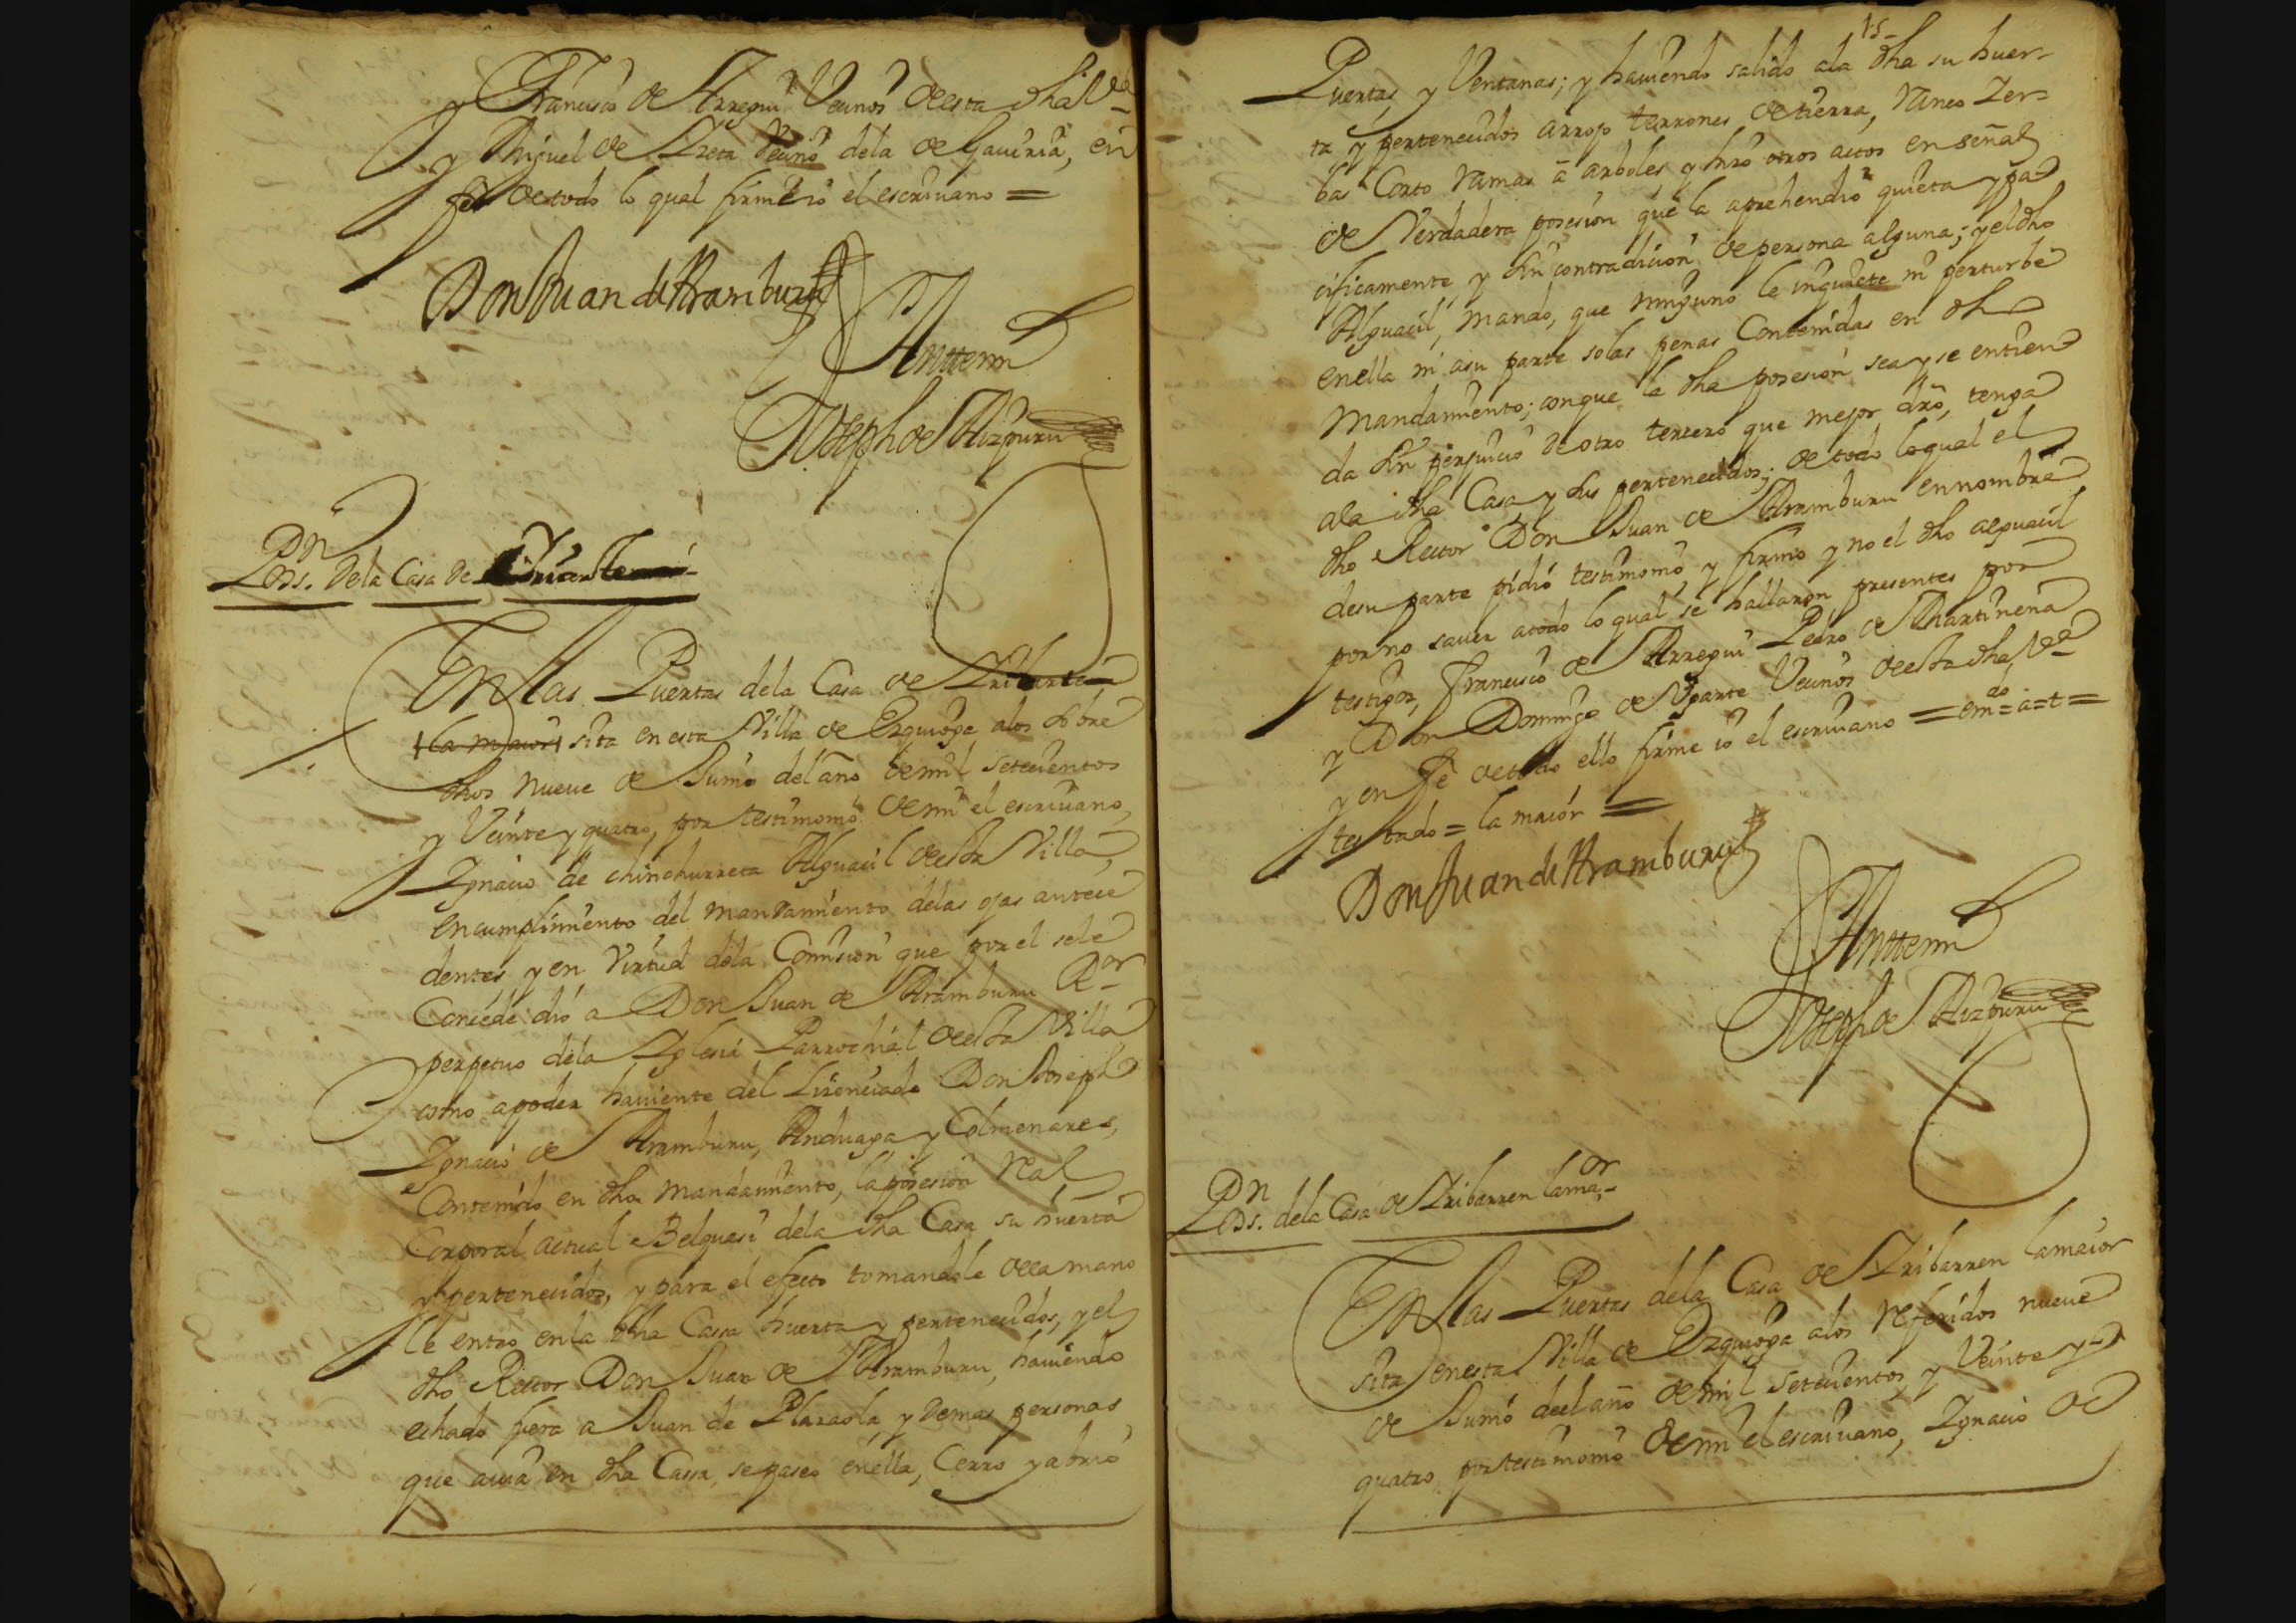 y Francisco de Arregui Vecinos de esta dha Va
y Miguel de Areta Vecino dela de Gaviria, en
fee de todo lo qual firme io el escrivano =
Don Juan de Aramburu
Antemi
Joseph de Aizpuru
Pon
Pos. dela Casa de
En las Puertas dela Casa de
la maior sita en esta Villa de Ezquioga alos sobre
dhos nueve de Junio del año de mil setecientos
y Veinte y quatro, por testimonio de mi el escrivano,
Ignacio de Chinchurreta Alguacil de esta Villa,
en cumplimiento del mandamiento delas ojas antece
dentes, y en Virtud dela Comision que por el sele
Concede dió a Don Juan de Aramburu Ror
perpetuo dela Iglesia Parrochial de esta Villa
como apoder haviente del Licenciado Don Joseph
Ignacio de Aramburu, Anduaga y Colmenares,
Contenido en dho mandamiento, la posesion real
Corporal actual Belquasi dela dha Casa su huerta
y pertenecidos, y para el efecto tomandole dela mano
le entro enla dha Cassa huerta y pertenecidos, y el
dho Rector Don Juan de Aramburu, haviendo
echado fuera a Juan de Plazaola, y demas personas
que avia en dha Cassa, se paseo enella, Cerro y abrio
15-
Puertas y Ventanas; y haviendo salido ala dha su huer-
ta y pertenecidos arrojo terrones de tierra, ranco Zer=
bas Corto ramas a arboles, y hizo otros actos en señal
de Verdadera posesion que la aprehendio quieta y pa
cificamente, y sin contradicion de persona alguna; y el dho
Alguacil, mando, que ninguno le inquiete ni perturbe
enella ni asu parte solas penas Contenidas en dho
Mandamiento; conque la dha posesion sea y se entien
da sin perjuicio de otro tercero que mejor dro, tenga
ala dha Casa y sus pertenecidos; de todo loqual el
dho Rector Don Juan de Aramburu ennombre
desu parte pidió testimonio, y firmo y no el dho alguacil
por no saver atodo lo qual se hallaron presentes por
testigos, Francisco de Arregui Pedro de Martinena
y Don Domingo de Ugarte Vecinos de esta dha Va
y en Fe de todo ello firme io el escrivano = em do = a = t =
testado = la maior =
Don Juan de Aramburu
Antemi
Joseph de Aizpuru
Pon
Pos. dela Casa de Iribarren lamaor
En las Puertas dela Casa de Iribarren lamaior
sita enesta Villa de Ezquioga alos referidos nueve
de Junio del año de mil setecientos y Veinte y
quatro, por testimonio de mi el escrivano, Ignacio de